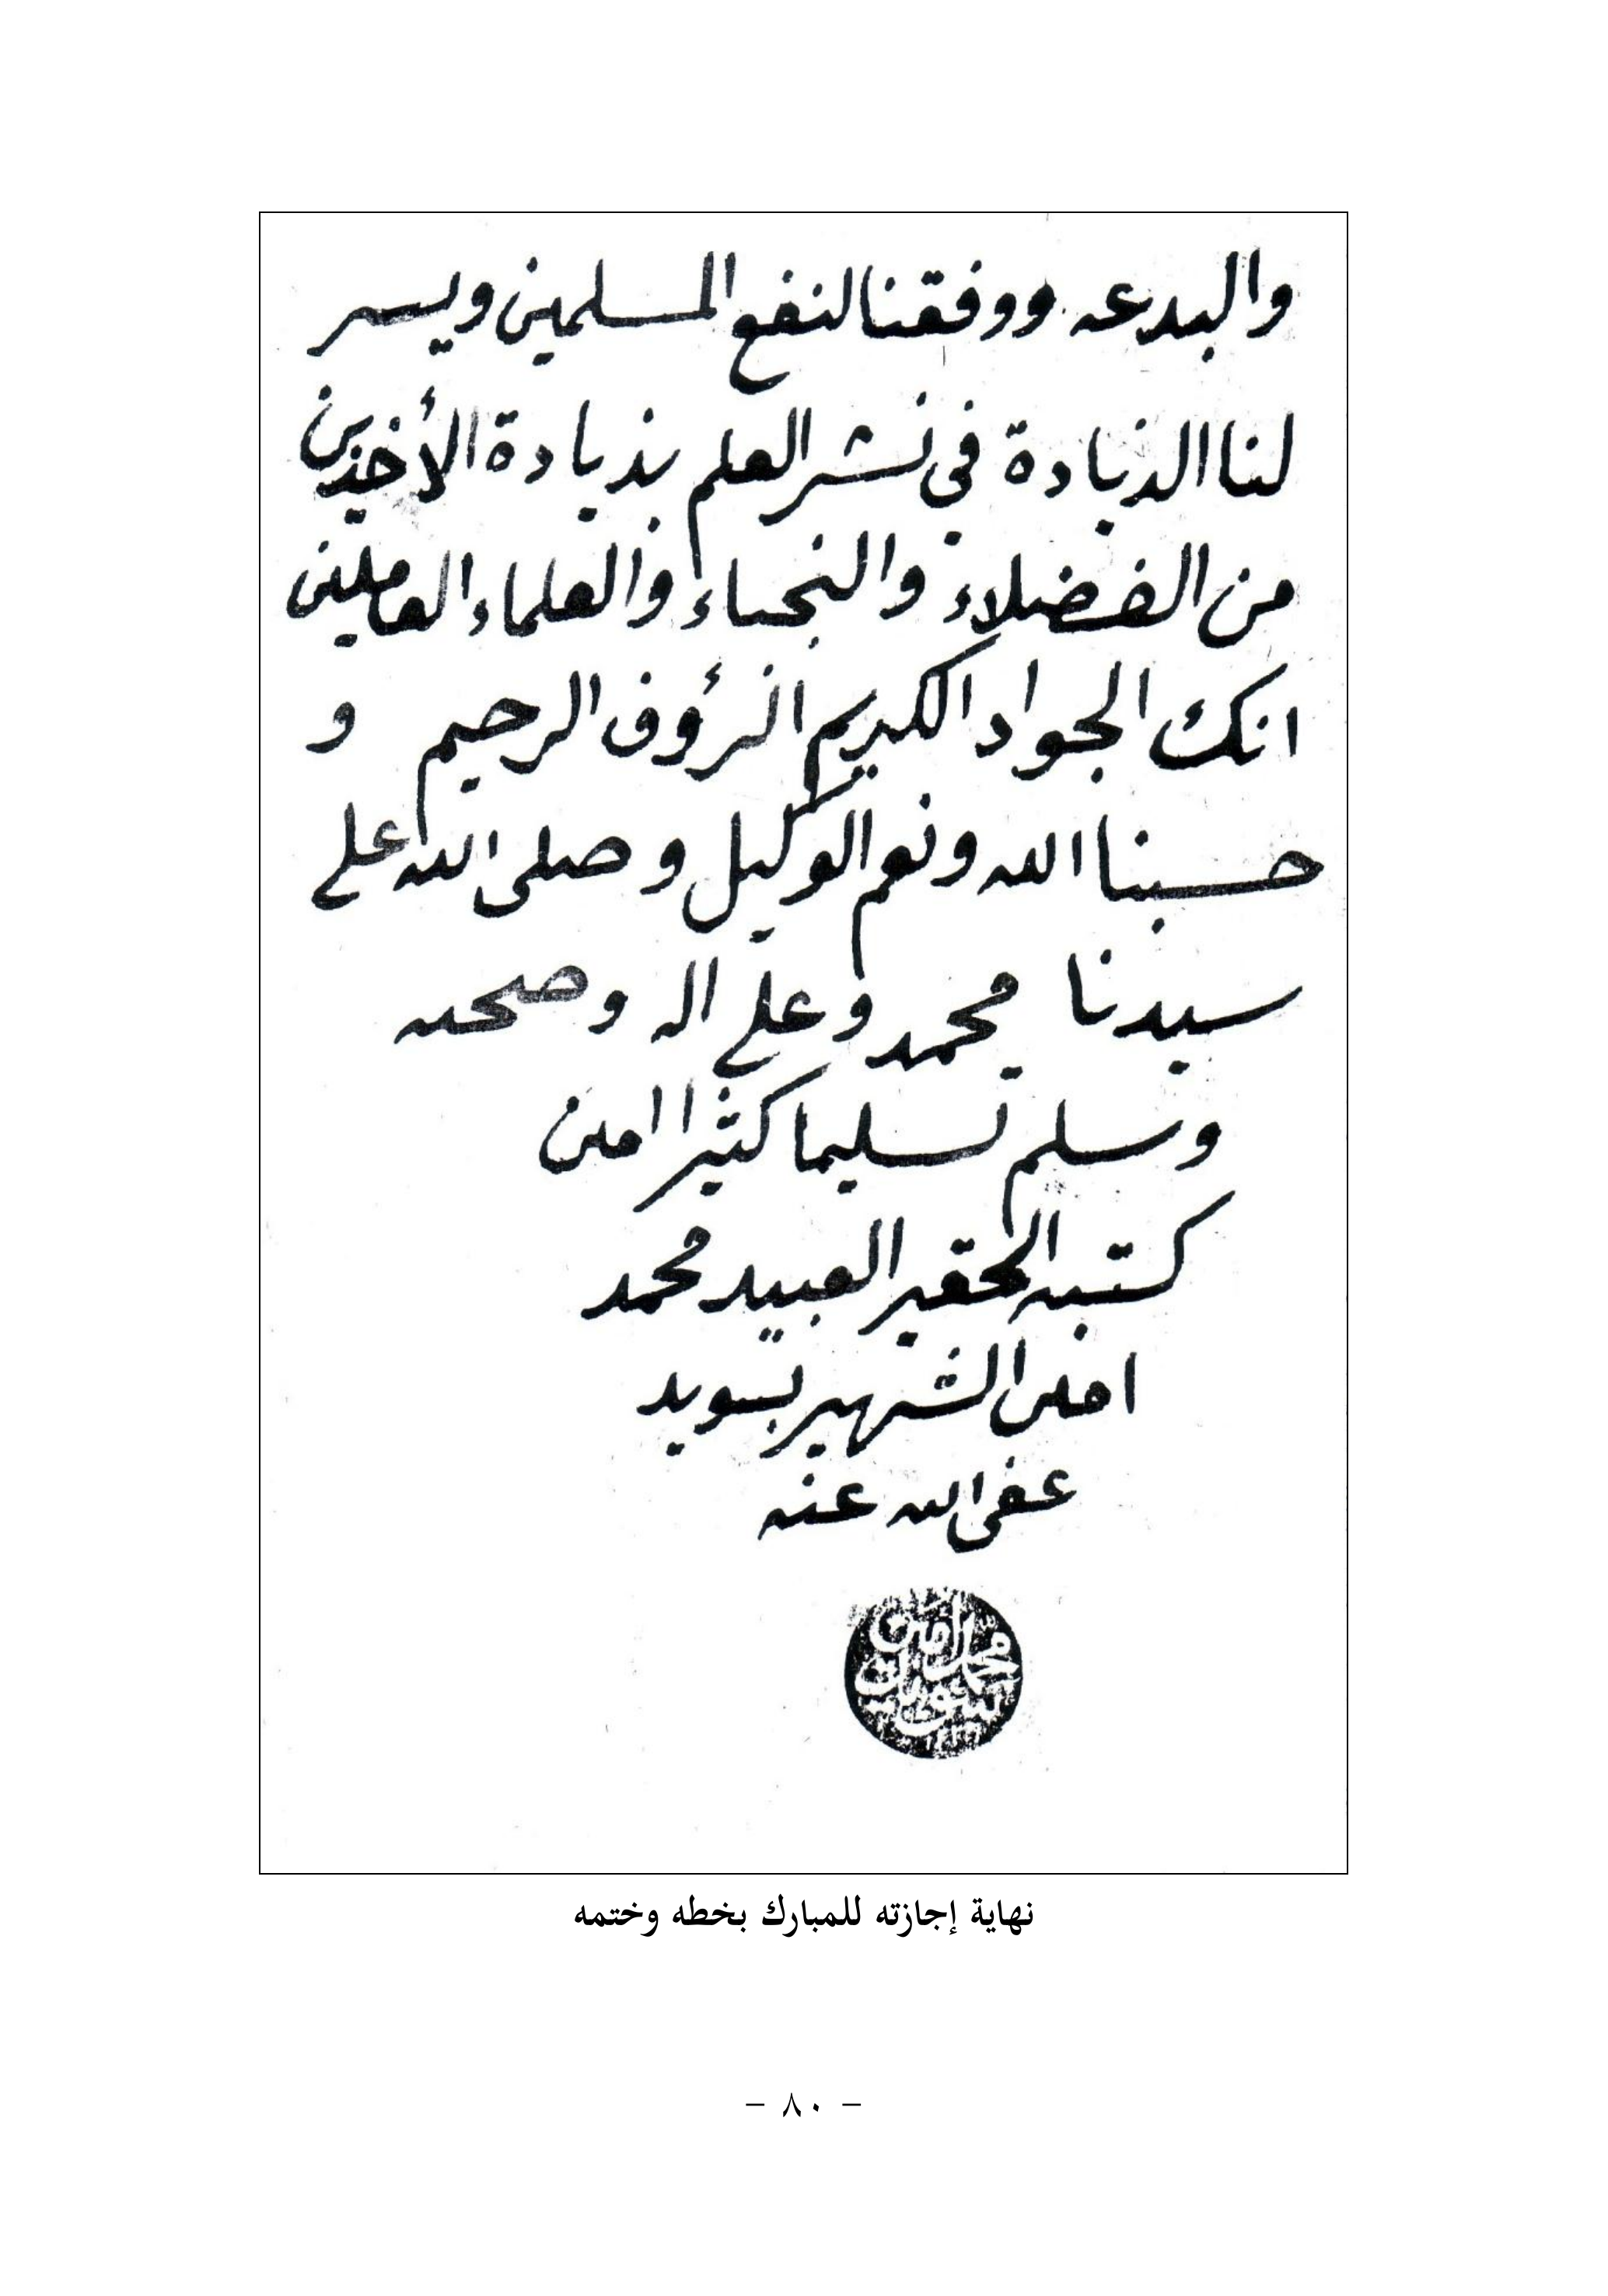 والبدعه ووفقنا لنفع المسلمين ويسر
لنا الزيادة في نشر العلم بزيادة الأخذين
من الفضلاء والنجباء والعلماء العاملين
انك الجواد الكريم الرؤف الرحيم و
حسبنا الله ونعم الوكيل وصلى الله على
سيدنا محمد وعلى اله وصحبه
وسلم تسليما كثيرا امين
كتبه الحقير العبيد محمد
امين الشهير بسويد
عفى الله عنه
محمد امين
سويد
نهاية إجازته للمبارك بخطه وختمه
- ٨٠ -